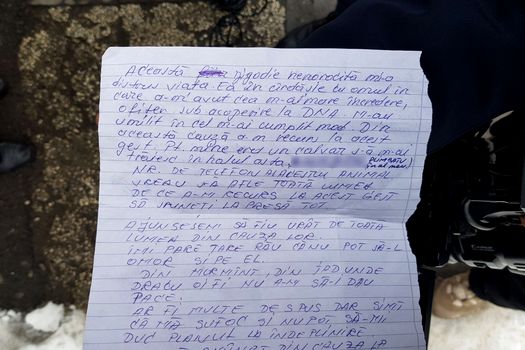 Această jigodie nenorocită mi-a
distrus viața. Ea în cîrdășie cu omul în
care a-m avut cea m-ai mare încredere,
ofițer sub acoperire la DNA. M-au
umilit în cel m-ai cumplit mod. Din
această cauză a-m recurs la acest
gest. Pt. mine era un calvar să m-ai
trăiesc în halul ăsta,
PLIMBATU
NR. DE TELEFON AL ACESTUI ANIMAL
VREAU SĂ AFLE TOATĂ LUMEA
DE CE A-M RECURS LA ACEST GEST
SĂ SPUNEȚI LA PRESĂ TOT.
AJUNSESEM SĂ FIU URÂT DE TOATĂ
LUMEA DIN CAUZA LOR.
ÎMI PARE TARE RĂU CĂ NU POT SĂ-L
OMOR ȘI PE EL.
DIN MORMÎNT, DIN IAD UNDE
DRACU OI FI NU A-M SĂ-I DAU
PACE.
AR FI MULTE DE SPUS DAR SIMT
CĂ MĂ SUFOC ȘI NU POT, SĂ-MI
DUC PLANUL LA ÎNDEPLINIRE.
DIN CAUZA LA